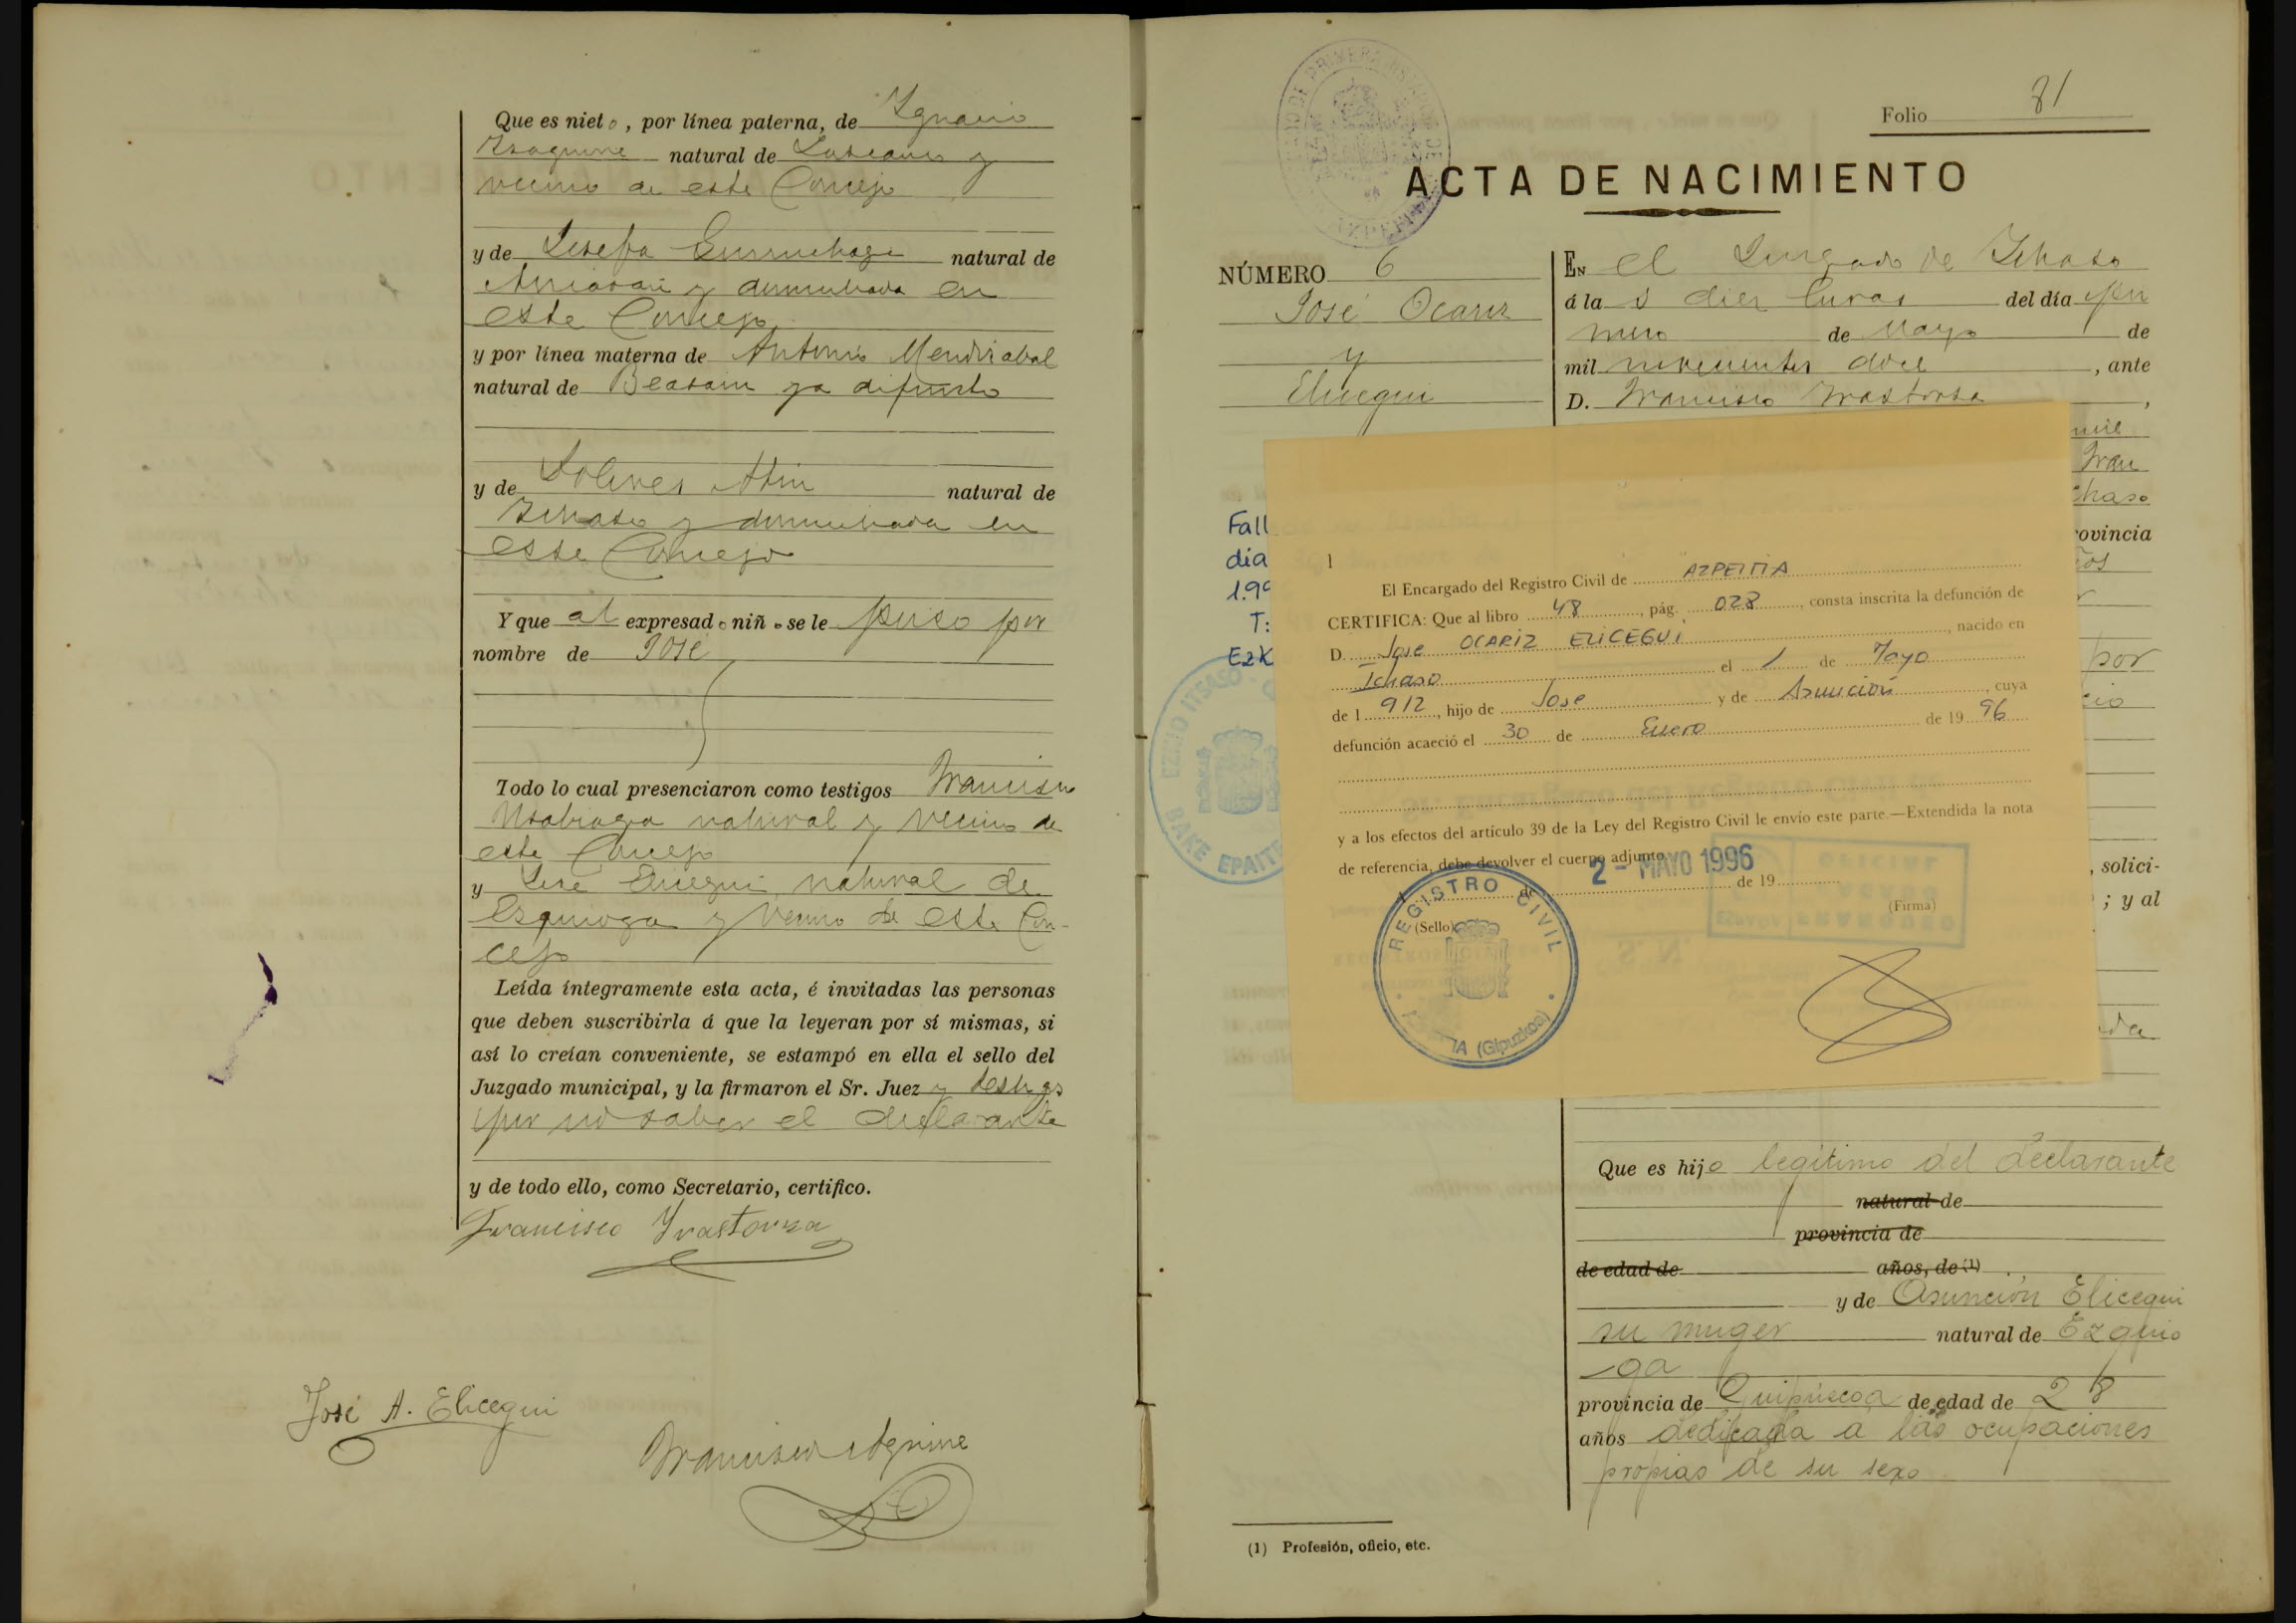 Que es nieto, por línea paterna, de Ygnacio
natural de Lascano y
vecino de este Concejo
y de Josefa Gurruchaga natural de
Arriaran y domiciliada en
este Concejo
y por línea materna de Antonio Mendizabal
natural de Beasain ya difunto
y de Dolores natural de
Ichaso y domiciliada en
este Concejo
Y que al expresado niño se le puso por
nombre de José
Todo lo cual presenciaron como testigos Francisco
natural y vecino de
este Concejo
y José Elicegui natural de
Ezquioga y vecino de este Con-
cejo
Leída íntegramente esta acta, é invitadas las personas
que deben suscribirla á que la leyeran por sí mismas, si
así lo creían conveniente, se estampó en ella el sello del
Juzgado municipal, y la firmaron el Sr. Juez y testigos
por no saber el declarante
y de todo ello, como Secretario, certifico.
Francisco Yrastorza
José A. Elicegui
Francisco Aguirre
Folio 81
ACTA DE NACIMIENTO
NÚMERO 6
José Ocariz
y
Elicegui
EN el Juzgado de Ichaso
á las diez horas del día pri
mero de Mayo de
mil novecientos doce, ante
D. Francisco Yrastorza,
Fall
día
1.99
T:
Ezk
chaso
rovincia
por
cio
, solici-
; y al
1
El Encargado del Registro Civil de AZPEITIA
CERTIFICA: Que al libro 48, pág. 028, consta inscrita la defunción de
D. Jose OCARIZ ELICEGUI, nacido en
Ichaso el 1 de Mayo
de 1 912, hijo de Jose y de Asunción, cuya
defunción acaeció el 30 de Enero de 19 96
y a los efectos del artículo 39 de la Ley del Registro Civil le envío este parte.—Extendida la nota
de referencia, debe devolver el cuerpo adjunto.
2 - MAYO 1996
de de 19
(Firma)
(Sello)
REGISTRO CIVIL
IA (Gipuzkoa)
EZKIO ITSASO
BAKE EPAITE
Que es hijo legítimo del declarante
natural de
provincia de
de edad de años, de (1)
y de Asunción Elicegui
su muger natural de Ezquio
ga
provincia de Guipúzcoa de edad de 28
años dedicada a las ocupaciones
propias de su sexo
(1) Profesión, oficio, etc.